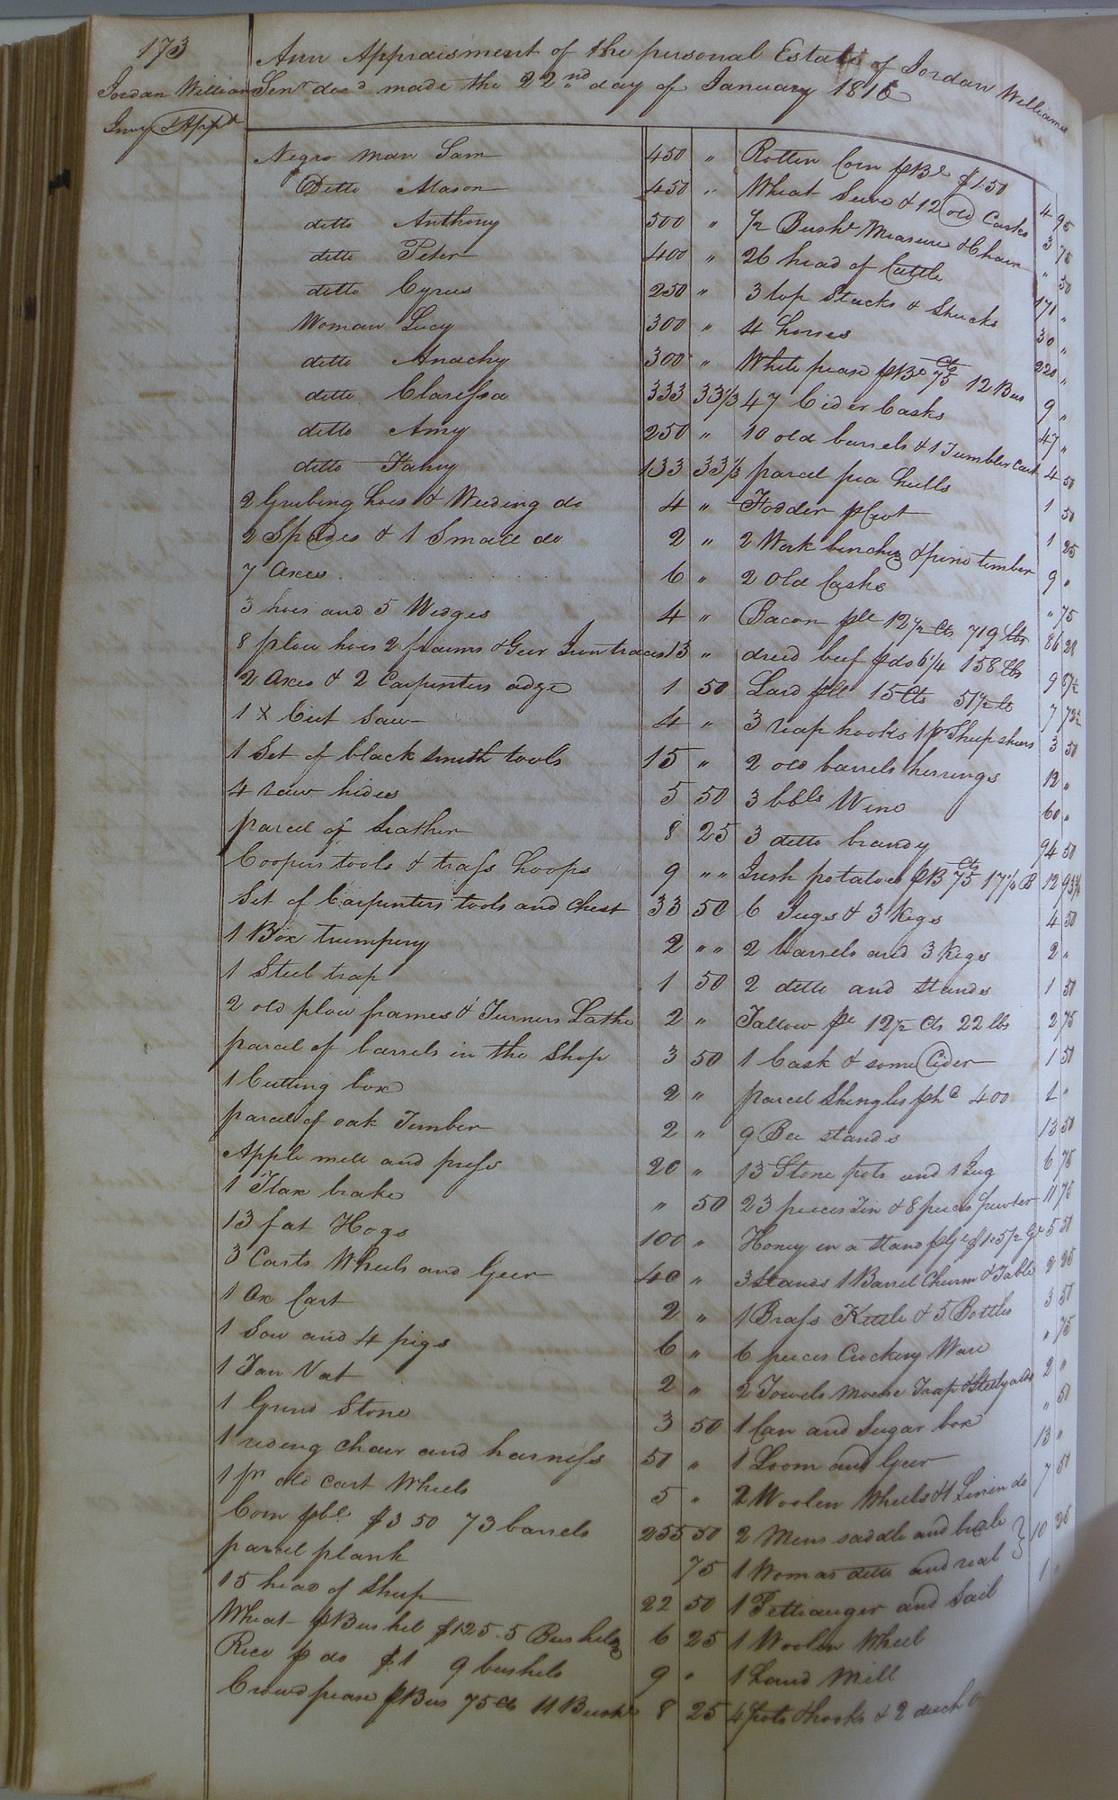 173
Jordan William
Invy & Appt
Ann Appraisment of the personal Estate of Jordan Williams
Senr decd made the 22nd day of January 181
Negro man Sam 450 "
Ditto Mason 450 "
ditto Anthony 500 "
ditto Peter 400 "
ditto Cyrus 250 "
Woman Lucy 300 "
ditto Anachy 300 "
ditto Clarissa 333 33 1/3
ditto Amy 250 "
ditto Fanny 133 33 1/3
2 Grubing hoes & Weeding do 4 "
2 Spades & 1 Small do 2 "
7 Axes 6 "
3 hoes and 5 Wedges 4 "
8 plow hoes 2 frames & Geer Iron traces 13 "
2 Axes & 2 Carpenters adze 1 50
1 X Cut Saw 4 "
1 Set of black smith tools 15 "
4 raw hides 5 50
parcel of Leather 8 25
Coopers tools & trass hoops 9 " "
Set of Carpenters tools and Chest 33 50
1 Box trumpery 2 " "
1 Steel trap 1 50
2 old plow frames & Turners Lathe 2 "
parcel of barrels in the Shop 3 50
1 Cutting box 2 "
parcel of oak Timber 2 "
Apple mill and press 20 "
1 Flax brake " 50
13 fat Hogs 100 "
3 Carts Wheels and Geer 40 "
1 Ox Cart 2 "
1 Sow and 4 pigs 6 "
1 Tan Vat 2 "
1 Grind Stone 3 50
1 riding chair and harness 50 "
1 pr old cart Wheels 5 "
Corn pbl $3 50 73 barrels 255 50
parcel plank 75
15 head of Sheep 22 50
Wheat pBushel $1.25. 5 Bushels 6 25
Rice p do $1 9 bushels 9 "
Crowd pease pBus 75 Cts 11 Bushs 8 25
Rotten Corn pBl $1.50 4 95
Wheat Seive & 12 old Casks 3 75
1/2 Bushl Measure & Chain " 50
26 head of Cattle 171 "
3 top Stacks & Shucks 30 "
4 horses 220 "
White pease pBs 75 Cts 12 Bus 9 "
47 Cider Casks 47 "
10 old barrels & 1 Tumbler Cart 4 50
parcel pea hulls 1 50
Fodder pCwt 1 25
2 Work benches & pine timber 9 "
2 old Casks " 75
Bacon plb 12 1/2 Cts 719 lbs 86 28
dried beef pdo 6 1/4 158 lbs 9 87 1/2
Lard plb 15 Cts 51 1/2 lb 7 72 1/2
3 reap hooks 1 pr Sheep shears 3 50
2 old barrels herrings 12 "
3 bbls Wine 60 "
3 ditto brandy 94 50
Irish potatoes pB 75 Cts 17 1/4 B 12 93 3/4
6 Jugs & 3 Kegs 4 50
2 barrels and 3 Kegs 2 "
2 ditto and Stands 1 50
Tallow p 12 1/2 Cts 22 lbs 2 75
1 Cask & some Cider 1 50
parcel Shingles phd 400 1 "
9 Bee stands 13 50
13 Stone pots and 1 Jug 6 75
23 peices Tin & 8 peices pewter 11 75
Honey in a stand pGl $1. 5 1/2 Gl 5 50
3 Stands 1 Barrel Churn & Table 2 25
1 Brass Kettle & 5 Bottles 3 50
6 peices Crockery Ware " 75
2 Towels Mouse Trap & Steelyards 2 "
1 Can and Sugar box " 50
1 Loom and Geer 13 "
2 Woolen Wheels & 1 Linin do 7 50
2 Mens saddle and bridle } 10 25
1 Womas ditto and
1 Pettiauger and Sail
1 Woolen Wheel
1 Hand Mill
4 pots & hooks & 2 duch